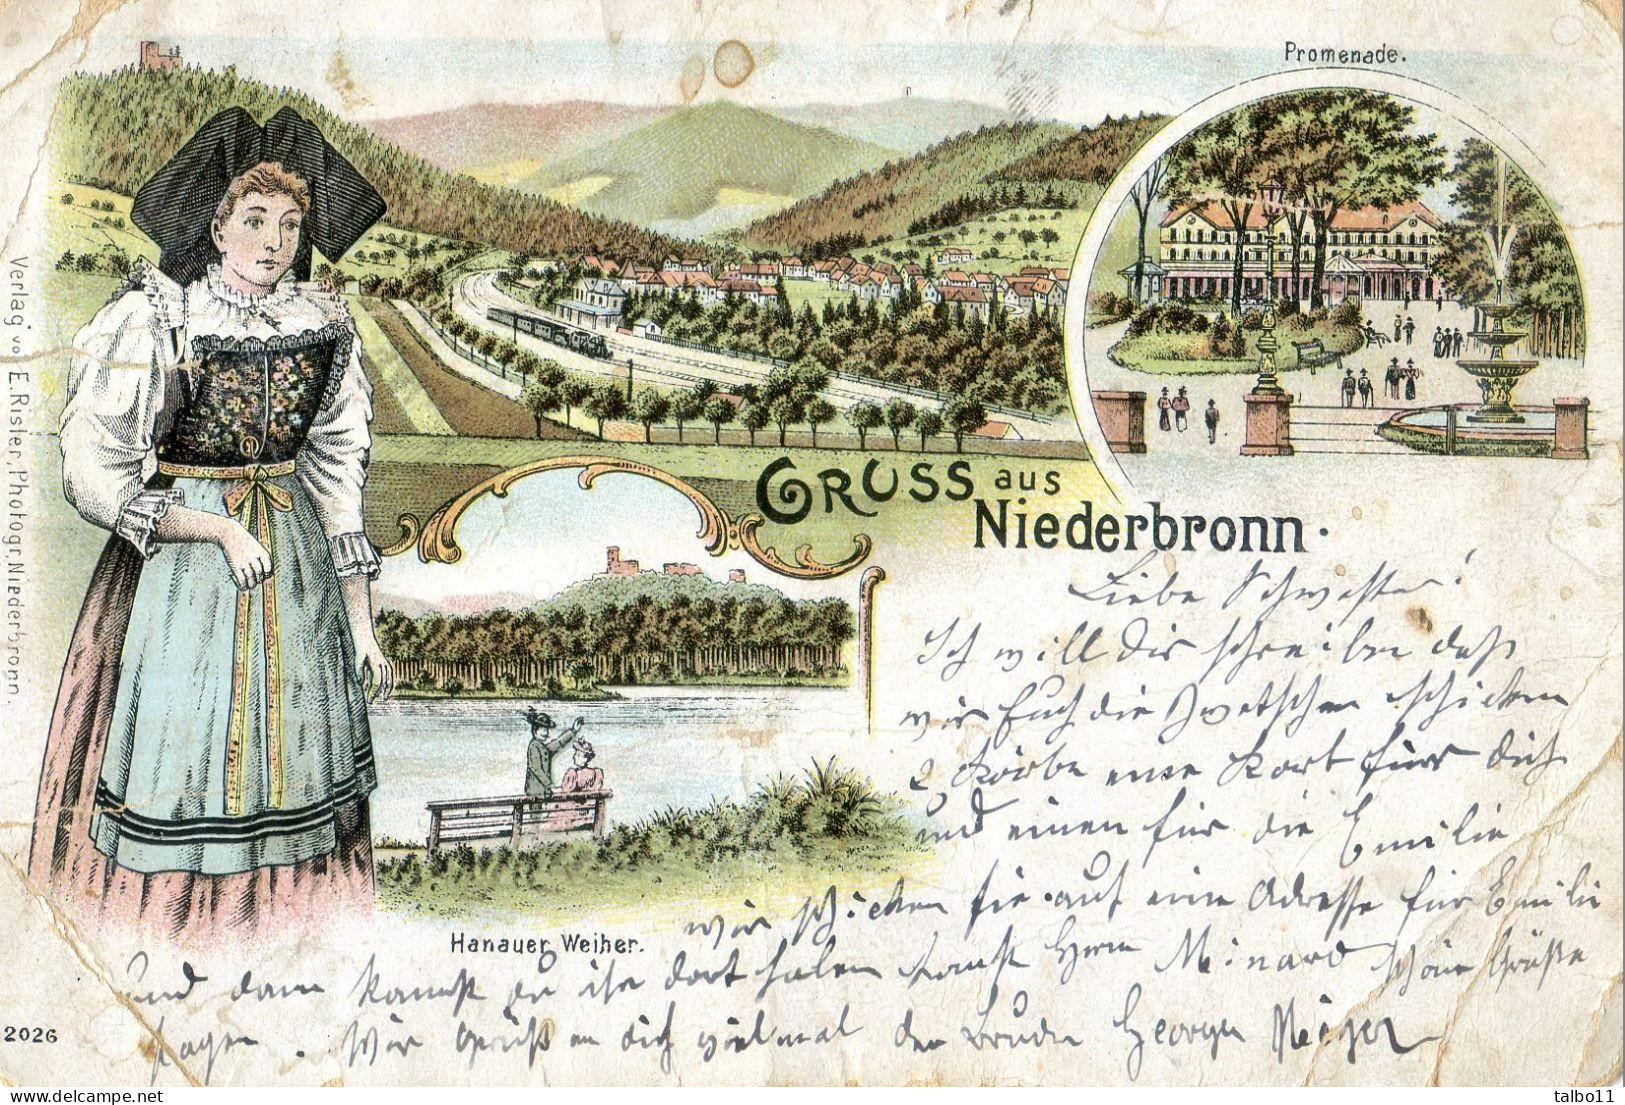 Promenade.
Verlag von E. Risler, Photogr. Niederbronn.
GRUSS aus
Niederbronn.
Liebe Schwester!
Ich will dir schreiben daß
wir Euch die Zwetschen schicken
2 Körbe eine Korb für dich
und einen für die Emilie
wir schicken sie auf eine Adresse für Emilie
Hanauer Weiher.
und dann kannst du ihr dort holen kanst Herrn Minard schöne Grüße
sagen. Wir Grüßen dich vielmal der Bruder George Meyer
2026
delcampe.net
talbo11